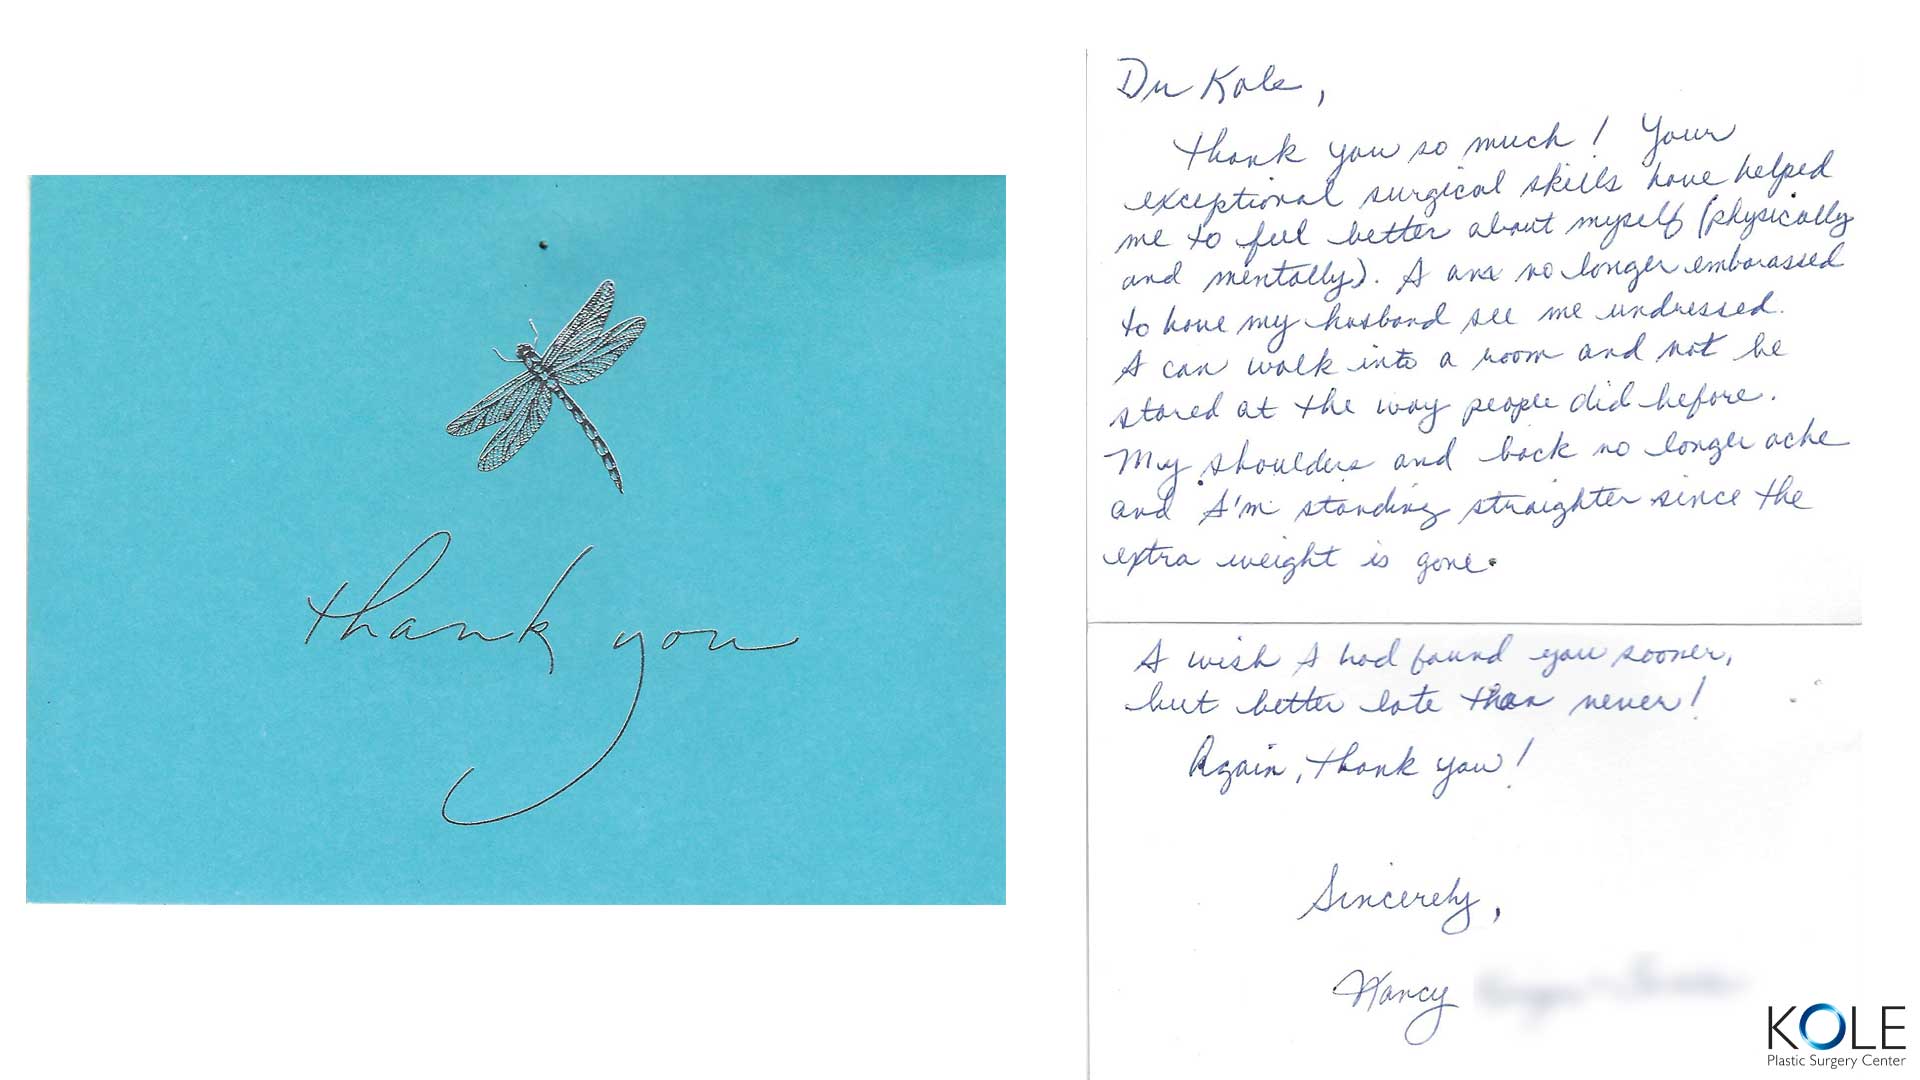 thank you
Dr Kole,
Thank you so much! Your
exceptional surgical skills have helped
me to feel better about myself (physically
and mentally). I am no longer embarassed
to have my husband see me undressed.
I can walk into a room and not be
stared at the way people did before.
My shoulders and back no longer ache
and I'm standing straighter since the
extra weight is gone.
I wish I had found you sooner,
but better late than never!
Again, thank you!
Sincerely,
Nancy
KOLE
Plastic Surgery Center